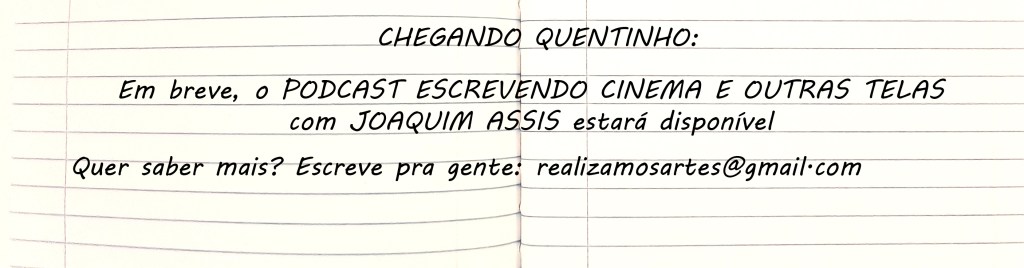 CHEGANDO QUENTINHO:
Em breve, o PODCAST ESCREVENDO CINEMA E OUTRAS TELAS
com JOAQUIM ASSIS estará disponível
Quer saber mais? Escreve pra gente: realizamosartes@gmail.com